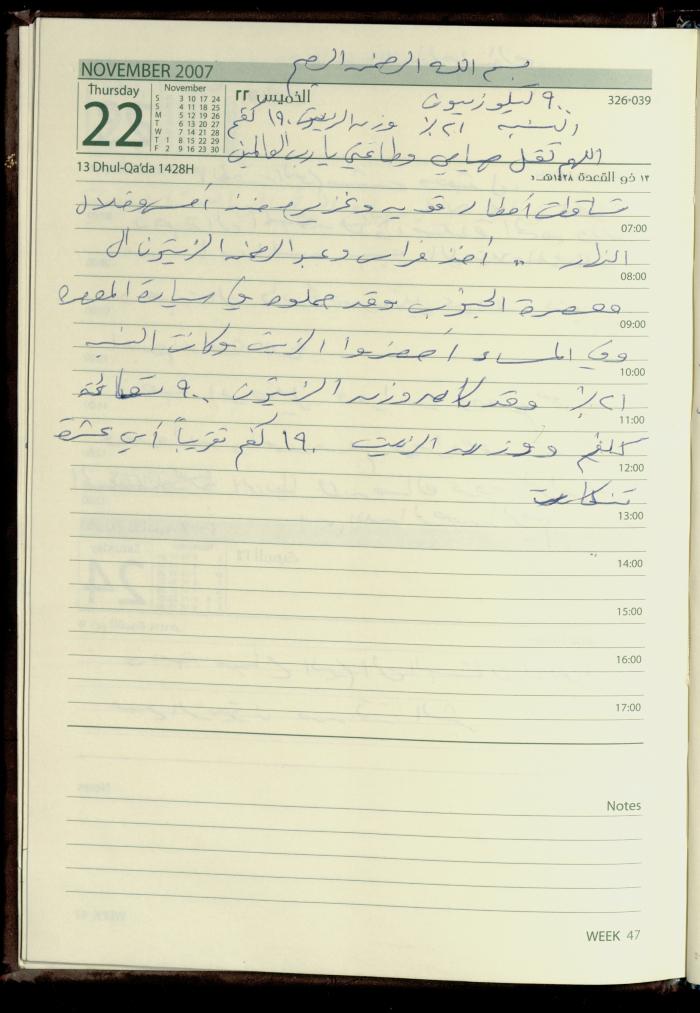 بسم الله الرحمن الرحيم
NOVEMBER 2007
Thursday
22
November
S 3 10 17 24
S 4 11 18 25
M 5 12 19 26
T 6 13 20 27
W 7 14 21 28
T 1 8 15 22 29
F 2 9 16 23 30
الخميس ٢٢
٩٠٠ كيلو زيتون
326-039
النسبه ٢١٪ وزن الزيت ١٩٠ كغم
اللهم تقبل صيامي وطاعتي يا رب العالمين
13 Dhul-Qa'da 1428H
١٣ ذو القعدة ١٤٢٨هـ
تساقطت أمطار قويه وغزيره منذ أمس وخلال
07:00
النهار .. أخذ فراس وعبد الرحمن الزيتون ال
08:00
معصرة الجنوب وقد حملوه في سيارة المعصره
09:00
وفي المساء أحضروا الزيت وكانت النسبه
10:00
٢١٪ وقد كان وزن الزيتون ٩٠٠ تسعمائة
11:00
كلغم ووزن الزيت ١٩٠ كغم تقريباً أي عشرة
12:00
تنكات
13:00
14:00
15:00
16:00
17:00
Notes
WEEK 47